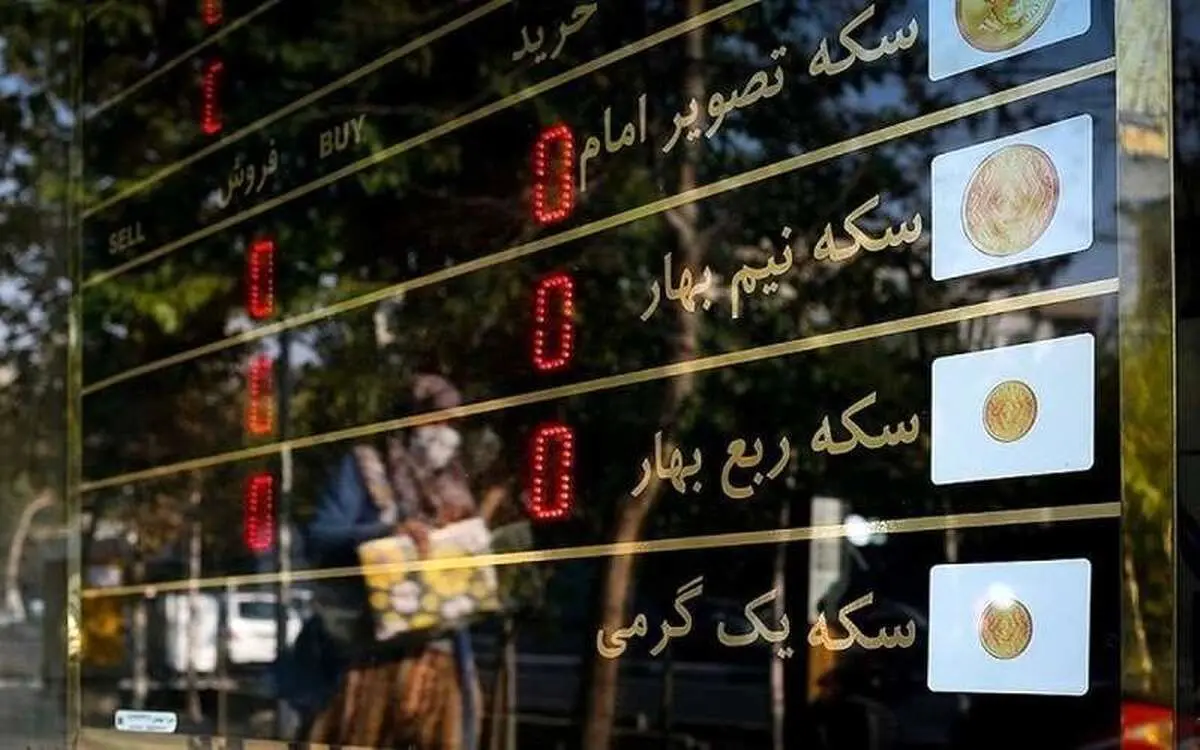 خرید
فروش BUY
SELL
سکه تصویر امام 0 0
سکه نیم بهار 0
سکه ربع بهار 0 0
سکه یک گرمی